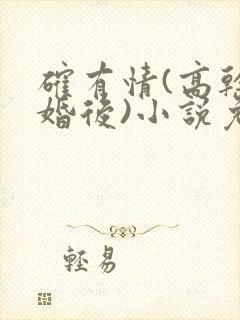 確有情(高幹
婚後)小說
輕易